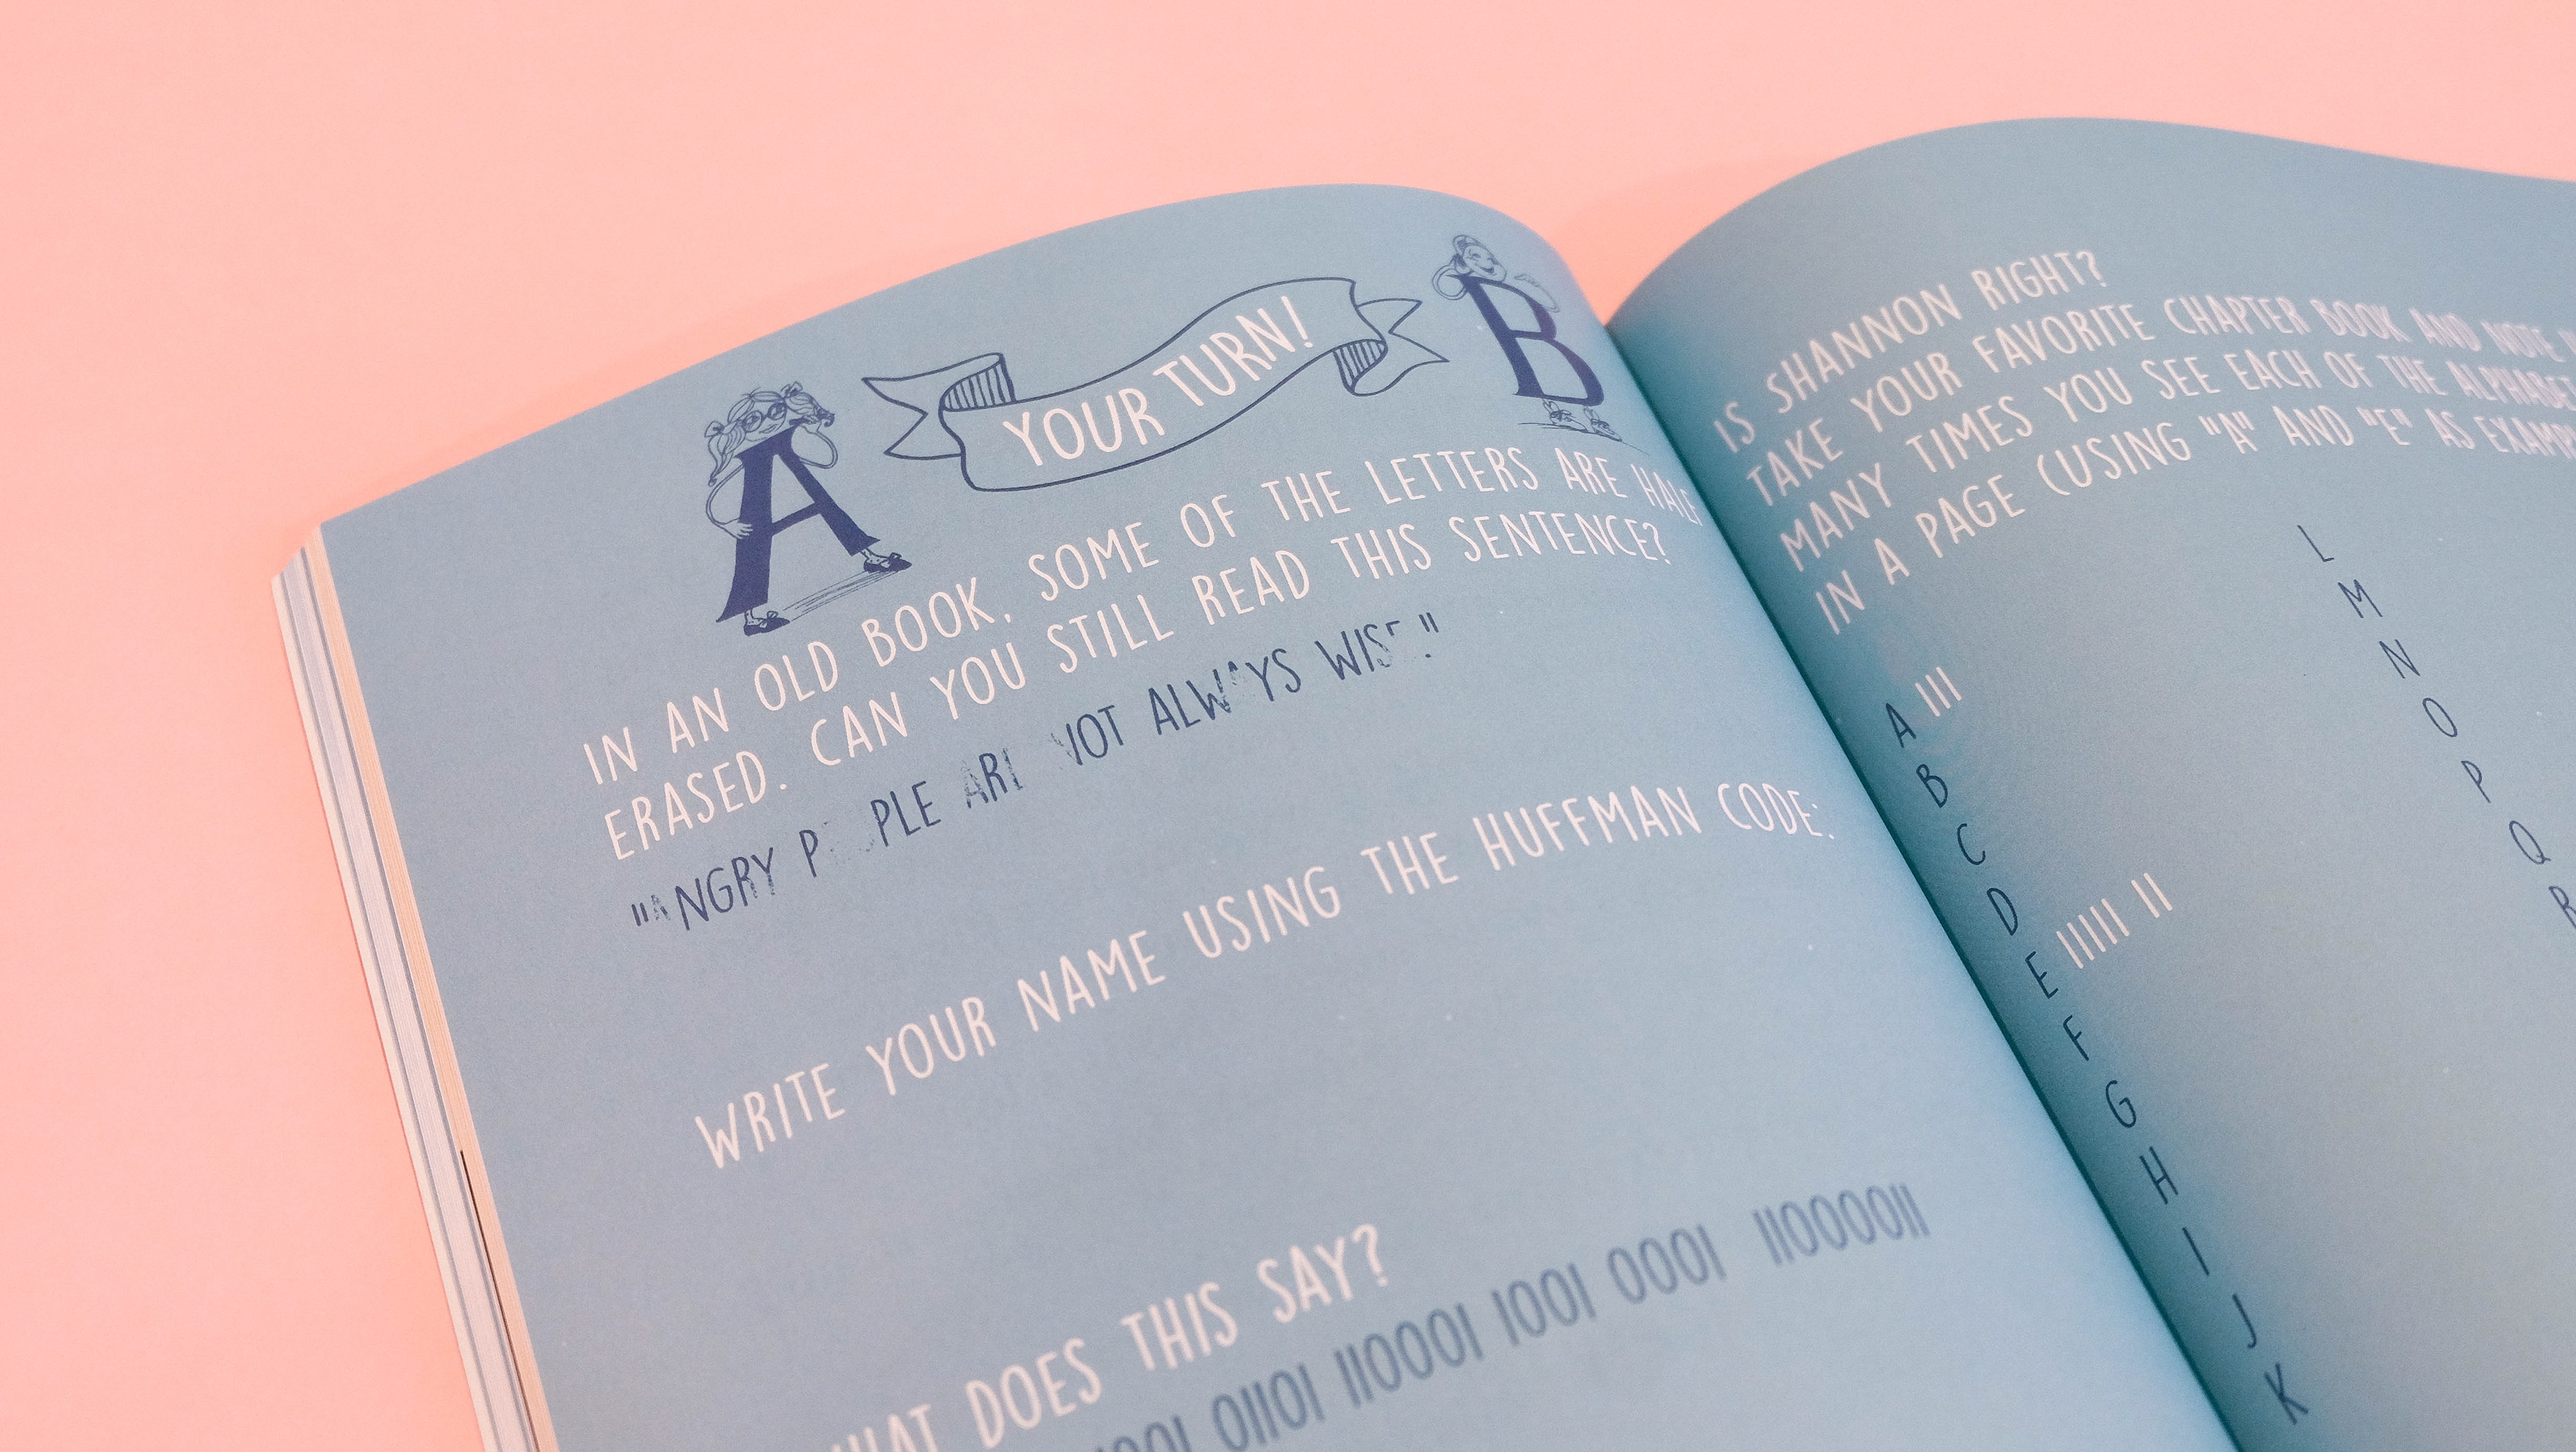 A
YOUR TURN!
B
IN AN OLD BOOK, SOME OF THE LETTERS ARE HALF
ERASED. CAN YOU STILL READ THIS SENTENCE?
"ANGRY PEOPLE ARE NOT ALWAYS WISE."
WRITE YOUR NAME USING THE HUFFMAN CODE:
WHAT DOES THIS SAY?
01101 110001 1001 0001 11000011
IS SHANNON RIGHT?
TAKE YOUR FAVORITE CHAPTER BOOK AND NOTE
MANY TIMES YOU SEE EACH OF THE
IN A PAGE (USING "A" AND "E" AS
A III
B
C
D
E IIIII II
F
G
H
I
J
K
L
M
N
O
P
Q
R